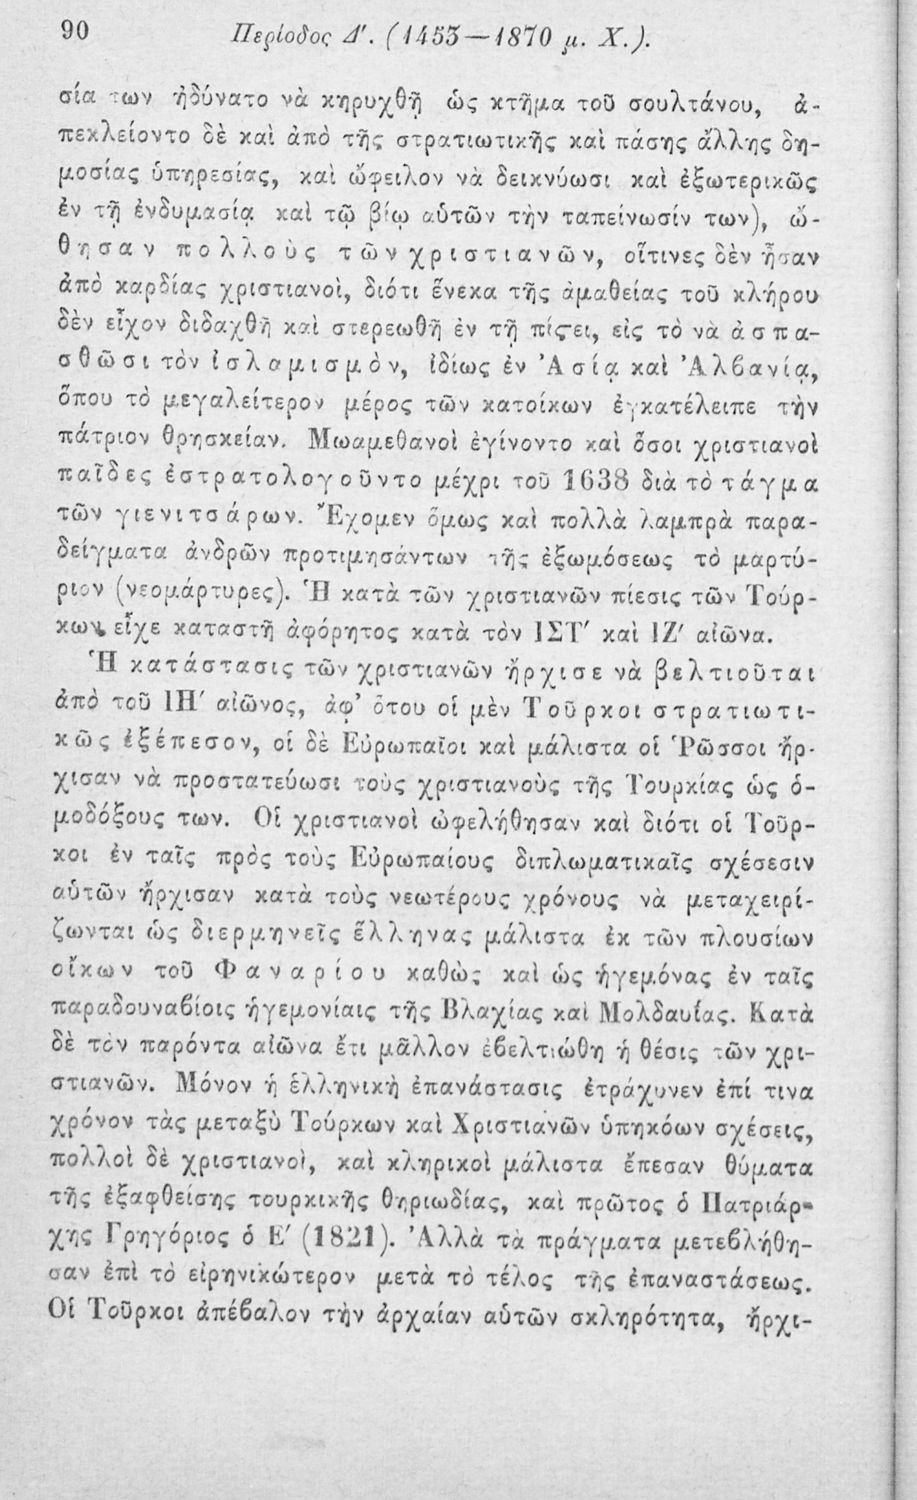 90 Περίοδος Δ'. (1453—1870 μ. Χ.).
σία των ἠδύνατο νὰ κηρυχθῇ ὡς κτῆμα τοῦ σουλτάνου, ἀ-
πεκλείοντο δὲ καὶ ἀπὸ τῆς στρατιωτικῆς καὶ πάσης ἄλλης δη-
μοσίας ὑπηρεσίας, καὶ ὤφειλον νὰ δεικνύωσι καὶ ἐξωτερικῶς
ἐν τῇ ἐνδυμασίᾳ καὶ τῷ βίῳ αὑτῶν τὴν ταπείνωσίν των), ὤ-
θησαν πολλοὺς τῶν χριστιανῶν, οἵτινες δὲν ἦσαν
ἀπὸ καρδίας χριστιανοὶ, διότι ἕνεκα τῆς ἀμαθείας τοῦ κλήρου
δὲν εἶχον διδαχθῆ καὶ στερεωθῆ ἐν τῇ πίστει, εἰς τὸ νὰ ἀσπα-
σθῶσι τὸν ἰσλαμισμὸν, ἰδίως ἐν Ἀσίᾳ καὶ Ἀλβανίᾳ,
ὅπου τὸ μεγαλείτερον μέρος τῶν κατοίκων ἐγκατέλειπε τὴν
πάτριον θρησκείαν. Μωαμεθανοὶ ἐγίνοντο καὶ ὅσοι χριστιανοὶ
παῖδες ἐστρατολογοῦντο μέχρι τοῦ 1638 διὰ τὸ τάγμα
τῶν γιενιτσάρων. Ἔχομεν ὅμως καὶ πολλὰ λαμπρὰ παρα-
δείγματα ἀνδρῶν προτιμησάντων τῆς ἐξωμόσεως τὸ μαρτύ-
ριον (νεομάρτυρες). Ἡ κατὰ τῶν χριστιανῶν πίεσις τῶν Τούρ-
κων εἶχε καταστῆ ἀφόρητος κατὰ τὸν ΙΣΤ' καὶ ΙΖ' αἰῶνα.
Ἡ κατάστασις τῶν χριστιανῶν ἤρχισε νὰ βελτιοῦται
ἀπὸ τοῦ ΙΗ' αἰῶνος, ἀφ' ὅτου οἱ μὲν Τοῦρκοι στρατιωτι-
κῶς ἐξέπεσον, οἱ δὲ Εὐρωπαῖοι καὶ μάλιστα οἱ Ῥῶσσοι ἤρ-
χισαν νὰ προστατεύωσι τοὺς χριστιανοὺς τῆς Τουρκίας ὡς ὁ-
μοδόξους των. Οἱ χριστιανοὶ ὠφελήθησαν καὶ διότι οἱ Τοῦρ-
κοι ἐν ταῖς πρὸς τοὺς Εὐρωπαίους διπλωματικαῖς σχέσεσιν
αὑτῶν ἤρχισαν κατὰ τοὺς νεωτέρους χρόνους νὰ μεταχειρί-
ζωνται ὡς διερμηνεῖς ἕλληνας μάλιστα ἐκ τῶν πλουσίων
οἴκων τοῦ Φαναρίου καθὼς καὶ ὡς ἡγεμόνας ἐν ταῖς
παραδουναβίοις ἡγεμονίαις τῆς Βλαχίας καὶ Μολδαυΐας. Κατὰ
δὲ τὸν παρόντα αἰῶνα ἔτι μᾶλλον ἐβελτιώθη ἡ θέσις τῶν χρι-
στιανῶν. Μόνον ἡ ἑλληνικὴ ἐπανάστασις ἐτράχυνεν ἐπί τινα
χρόνον τὰς μεταξὺ Τούρκων καὶ Χριστιανῶν ὑπηκόων σχέσεις,
πολλοὶ δὲ χριστιανοὶ, καὶ κληρικοὶ μάλιστα ἔπεσαν θύματα
τῆς ἐξαφθείσης τουρκικῆς θηριωδίας, καὶ πρῶτος ὁ Πατριάρ-
χης Γρηγόριος ὁ Ε' (1821). Ἀλλὰ τὰ πράγματα μετεβλήθη-
σαν ἐπὶ τὸ εἰρηνικώτερον μετὰ τὸ τέλος τῆς ἐπαναστάσεως.
Οἱ Τοῦρκοι ἀπέβαλον τὴν ἀρχαίαν αὑτῶν σκληρότητα, ἤρχι-